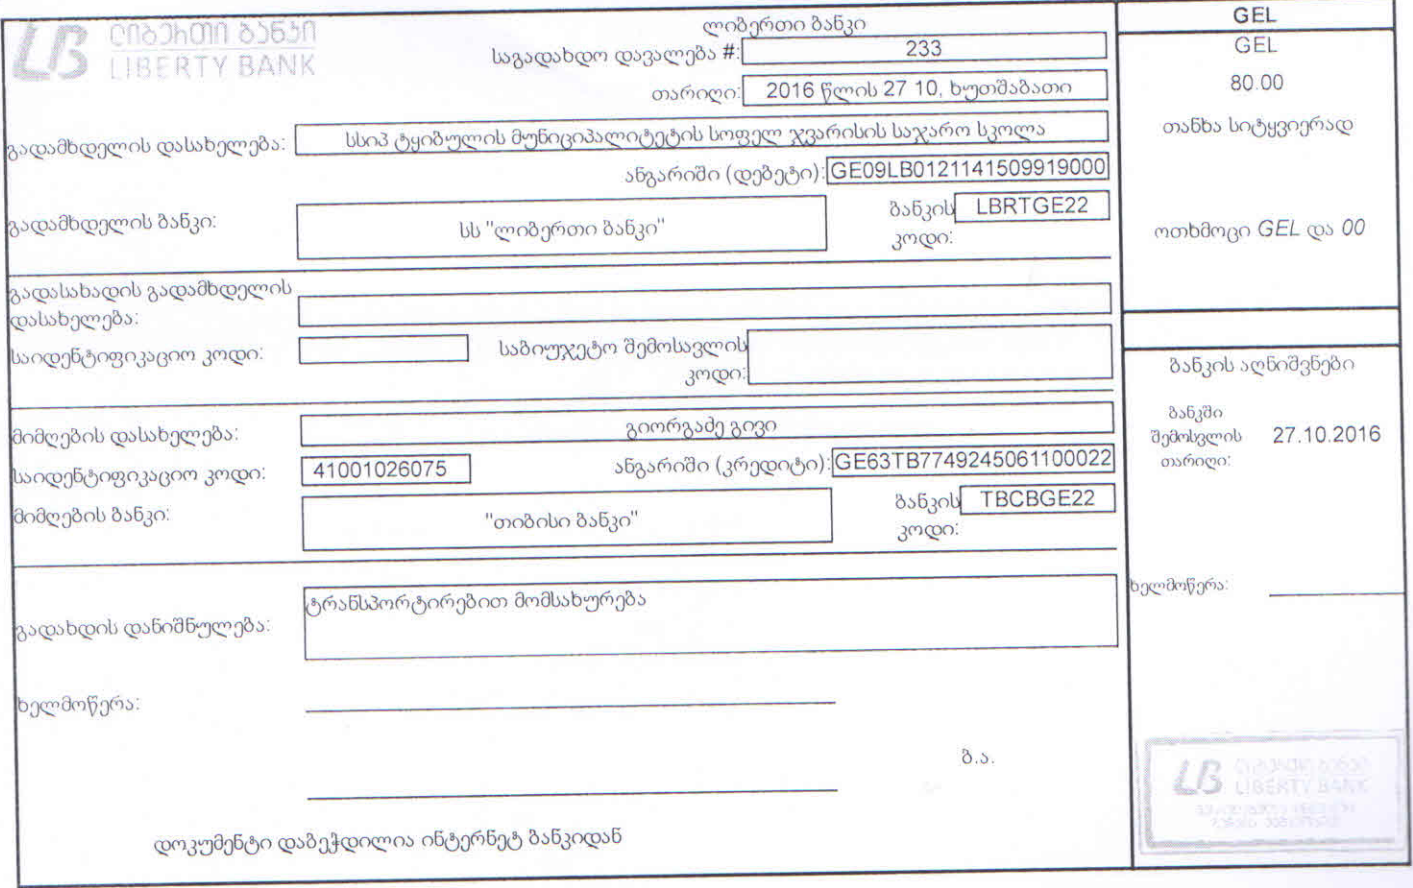 ლიბერთი ბანკი
LIBERTY BANK
ლიბერთი ბანკი
საგადახდო დავალება #: 233
თარიღი: 2016 წლის 27 10, ხუთშაბათი
გადამხდელის დასახელება: სსიპ ტყიბულის მუნიციპალიტეტის სოფელ ჯვარისის საჯარო სკოლა
ანგარიში (დებეტი): GE09LB0121141509919000
გადამხდელის ბანკი: სს "ლიბერთი ბანკი"
ბანკის კოდი: LBRTGE22
გადასახადის გადამხდელის
დასახელება:
საიდენტიფიკაციო კოდი:
საბიუჯეტო შემოსავლის
კოდი:
მიმღების დასახელება: გიორგაძე გივი
საიდენტიფიკაციო კოდი: 41001026075
ანგარიში (კრედიტი): GE63TB7749245061100022
მიმღების ბანკი: "თიბისი ბანკი"
ბანკის კოდი: TBCBGE22
გადახდის დანიშნულება: ტრანსპორტირებით მომსახურება
ხელმოწერა:
ბ.ა.
დოკუმენტი დაბეჭდილია ინტერნეტ ბანკიდან
GEL
GEL
80.00
თანხა სიტყვიერად
ოთხმოცი GEL და 00
ბანკის აღნიშვნები
ბანკში
შემოსვლის 27.10.2016
თარიღი:
ხელმოწერა:
ლიბერთი ბანკი
LIBERTY BANK